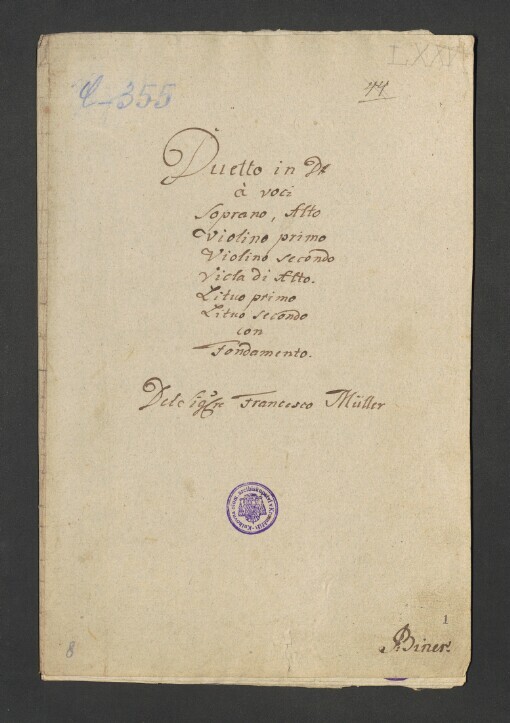 LXXI
C-355
44
Duetto in D#
à voci
Soprano, Alto
Violino primo
Violino secondo
Viola di Alto.
Lituo primo
Lituo secondo
con
Fondamento.
Dele Sigre Francesco Müller
1
8
Biner.